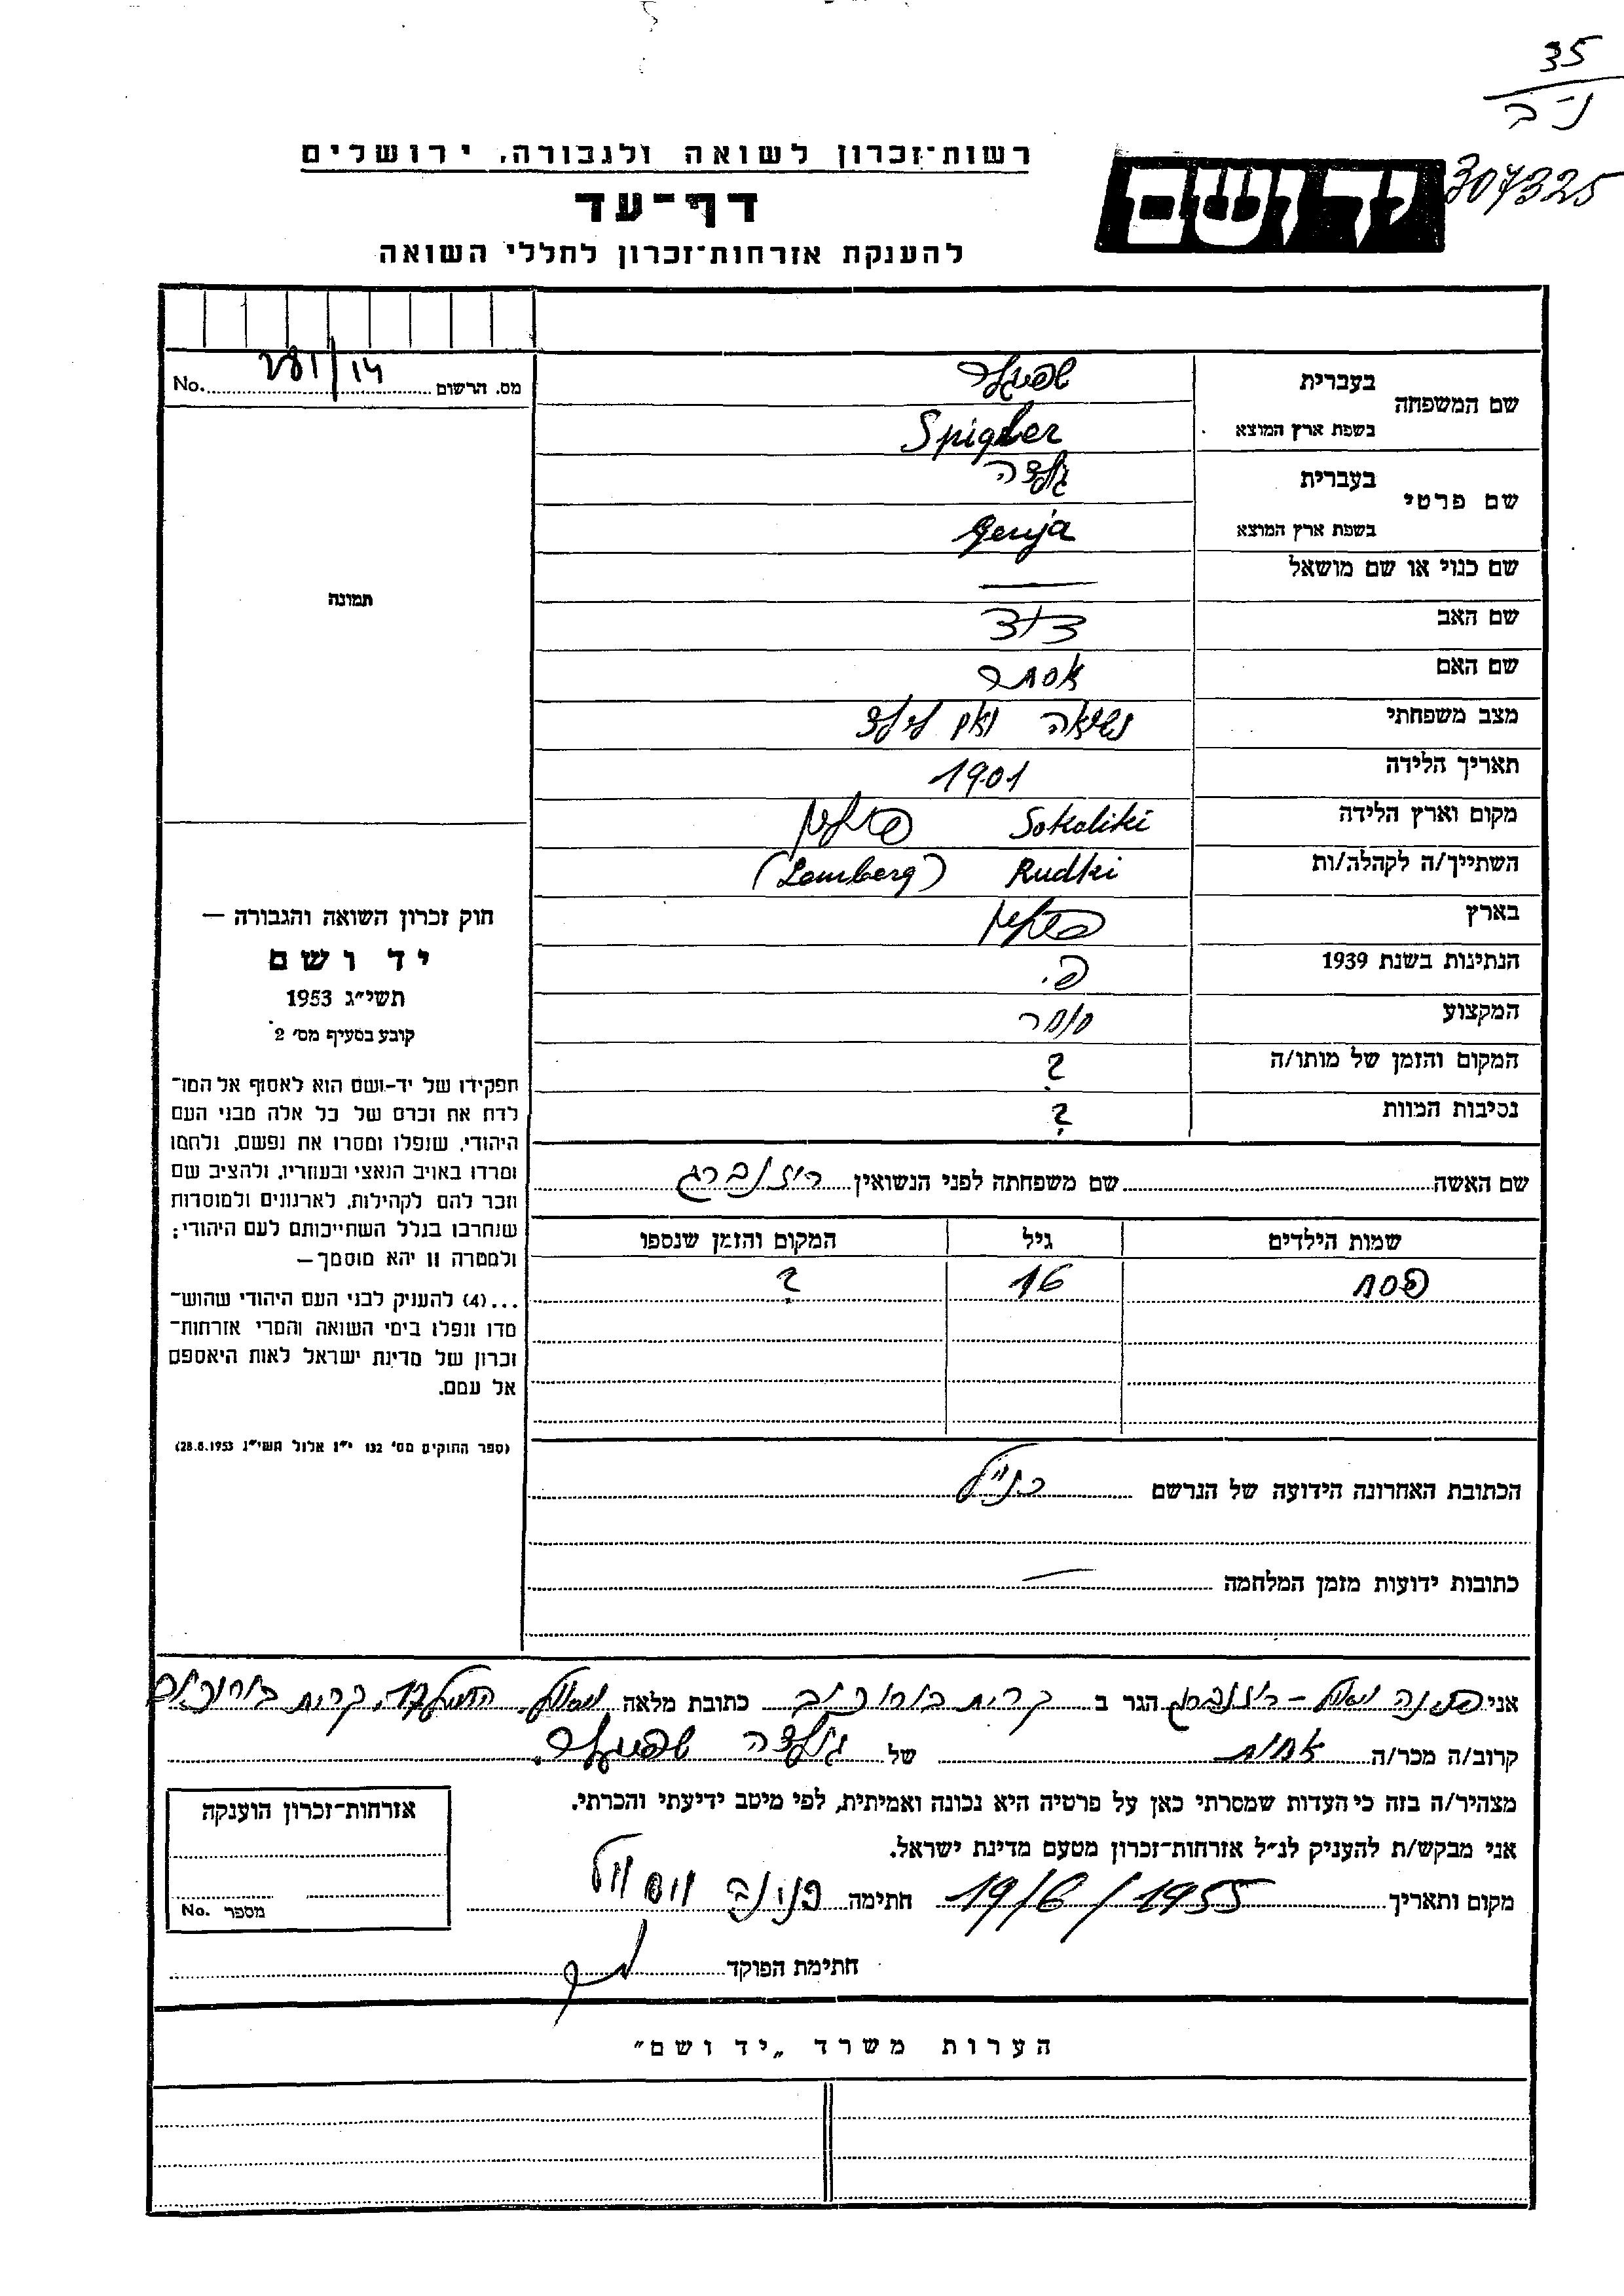 35
נ-ב
307325
רשות־זכרון לשואה ולגבורה, ירושלים
יד ושם
דף־עד
להענקת אזרחות־זכרון לחללי השואה
מס. הרשום 281/14 No.
שם המשפחה בעברית שפיגלר
בשפת ארץ המוצא Spigler
שם פרטי בעברית גולדה
בשפת ארץ המוצא Genja
שם כנוי או שם מושאל —
שם האב דוד
שם האם אסתר
מצב משפחתי נשואה ואם לילד
תאריך הלידה 1901
מקום וארץ הלידה Sokoliki פולין
השתייך/ה לקהלה/ות Rudki (Lemberg)
בארץ פולין
הנתינות בשנת 1939 פ.
המקצוע סוחר
המקום והזמן של מותו/ה ?
נסיבות המוות ?
תמונה
חוק זכרון השואה והגבורה —
יד ושם
תשי״ג 1953
קובע בסעיף מס׳ 2
תפקידו של יד-ושם הוא לאסוף אל המו־
לדת את זכרם של כל אלה מבני העם
היהודי, שנפלו ומסרו את נפשם, נלחמו
ומרדו באויב הנאצי ובעוזריו, ולהציב שם
וזכר להם לקהילות, לארגונים ולמוסדות
שנחרבו בגלל השתייכותם לעם היהודי;
ולמטרה זו יהא מוסמך —
...(4) להעניק לבני העם היהודי שהוש־
מדו ונפלו בימי השואה והמרי אזרחות־
זכרון של מדינת ישראל לאות היאספם
אל עמם.
(ספר החוקים מס׳ 132 י״ז אלול תשי״ג 28.8.1953)
שם האשה שם משפחתה לפני הנשואין רוזנברג
שמות הילדים גיל המקום והזמן שנספו
פסח 16 ?
הכתובת האחרונה הידועה של הנרשם כנ״ל
כתובות ידועות מזמן המלחמה —
אני פנינה רוזנברג הגר ב קרית בורוכוב כתובת מלאה קרית בורוכוב
קרוב/ה מכר/ה אחות של גולדה שפיגלר.
מצהיר/ה בזה כי העדות שמסרתי כאן על פרטיה היא נכונה ואמיתית, לפי מיטב ידיעתי והכרתי.
אני מבקש/ת להעניק לנ״ל אזרחות־זכרון מטעם מדינת ישראל.
מקום ותאריך 19/6/1955 חתימה
חתימת הפוקד
אזרחות־זכרון הוענקה
מספר No.
הערות משרד „יד ושם״